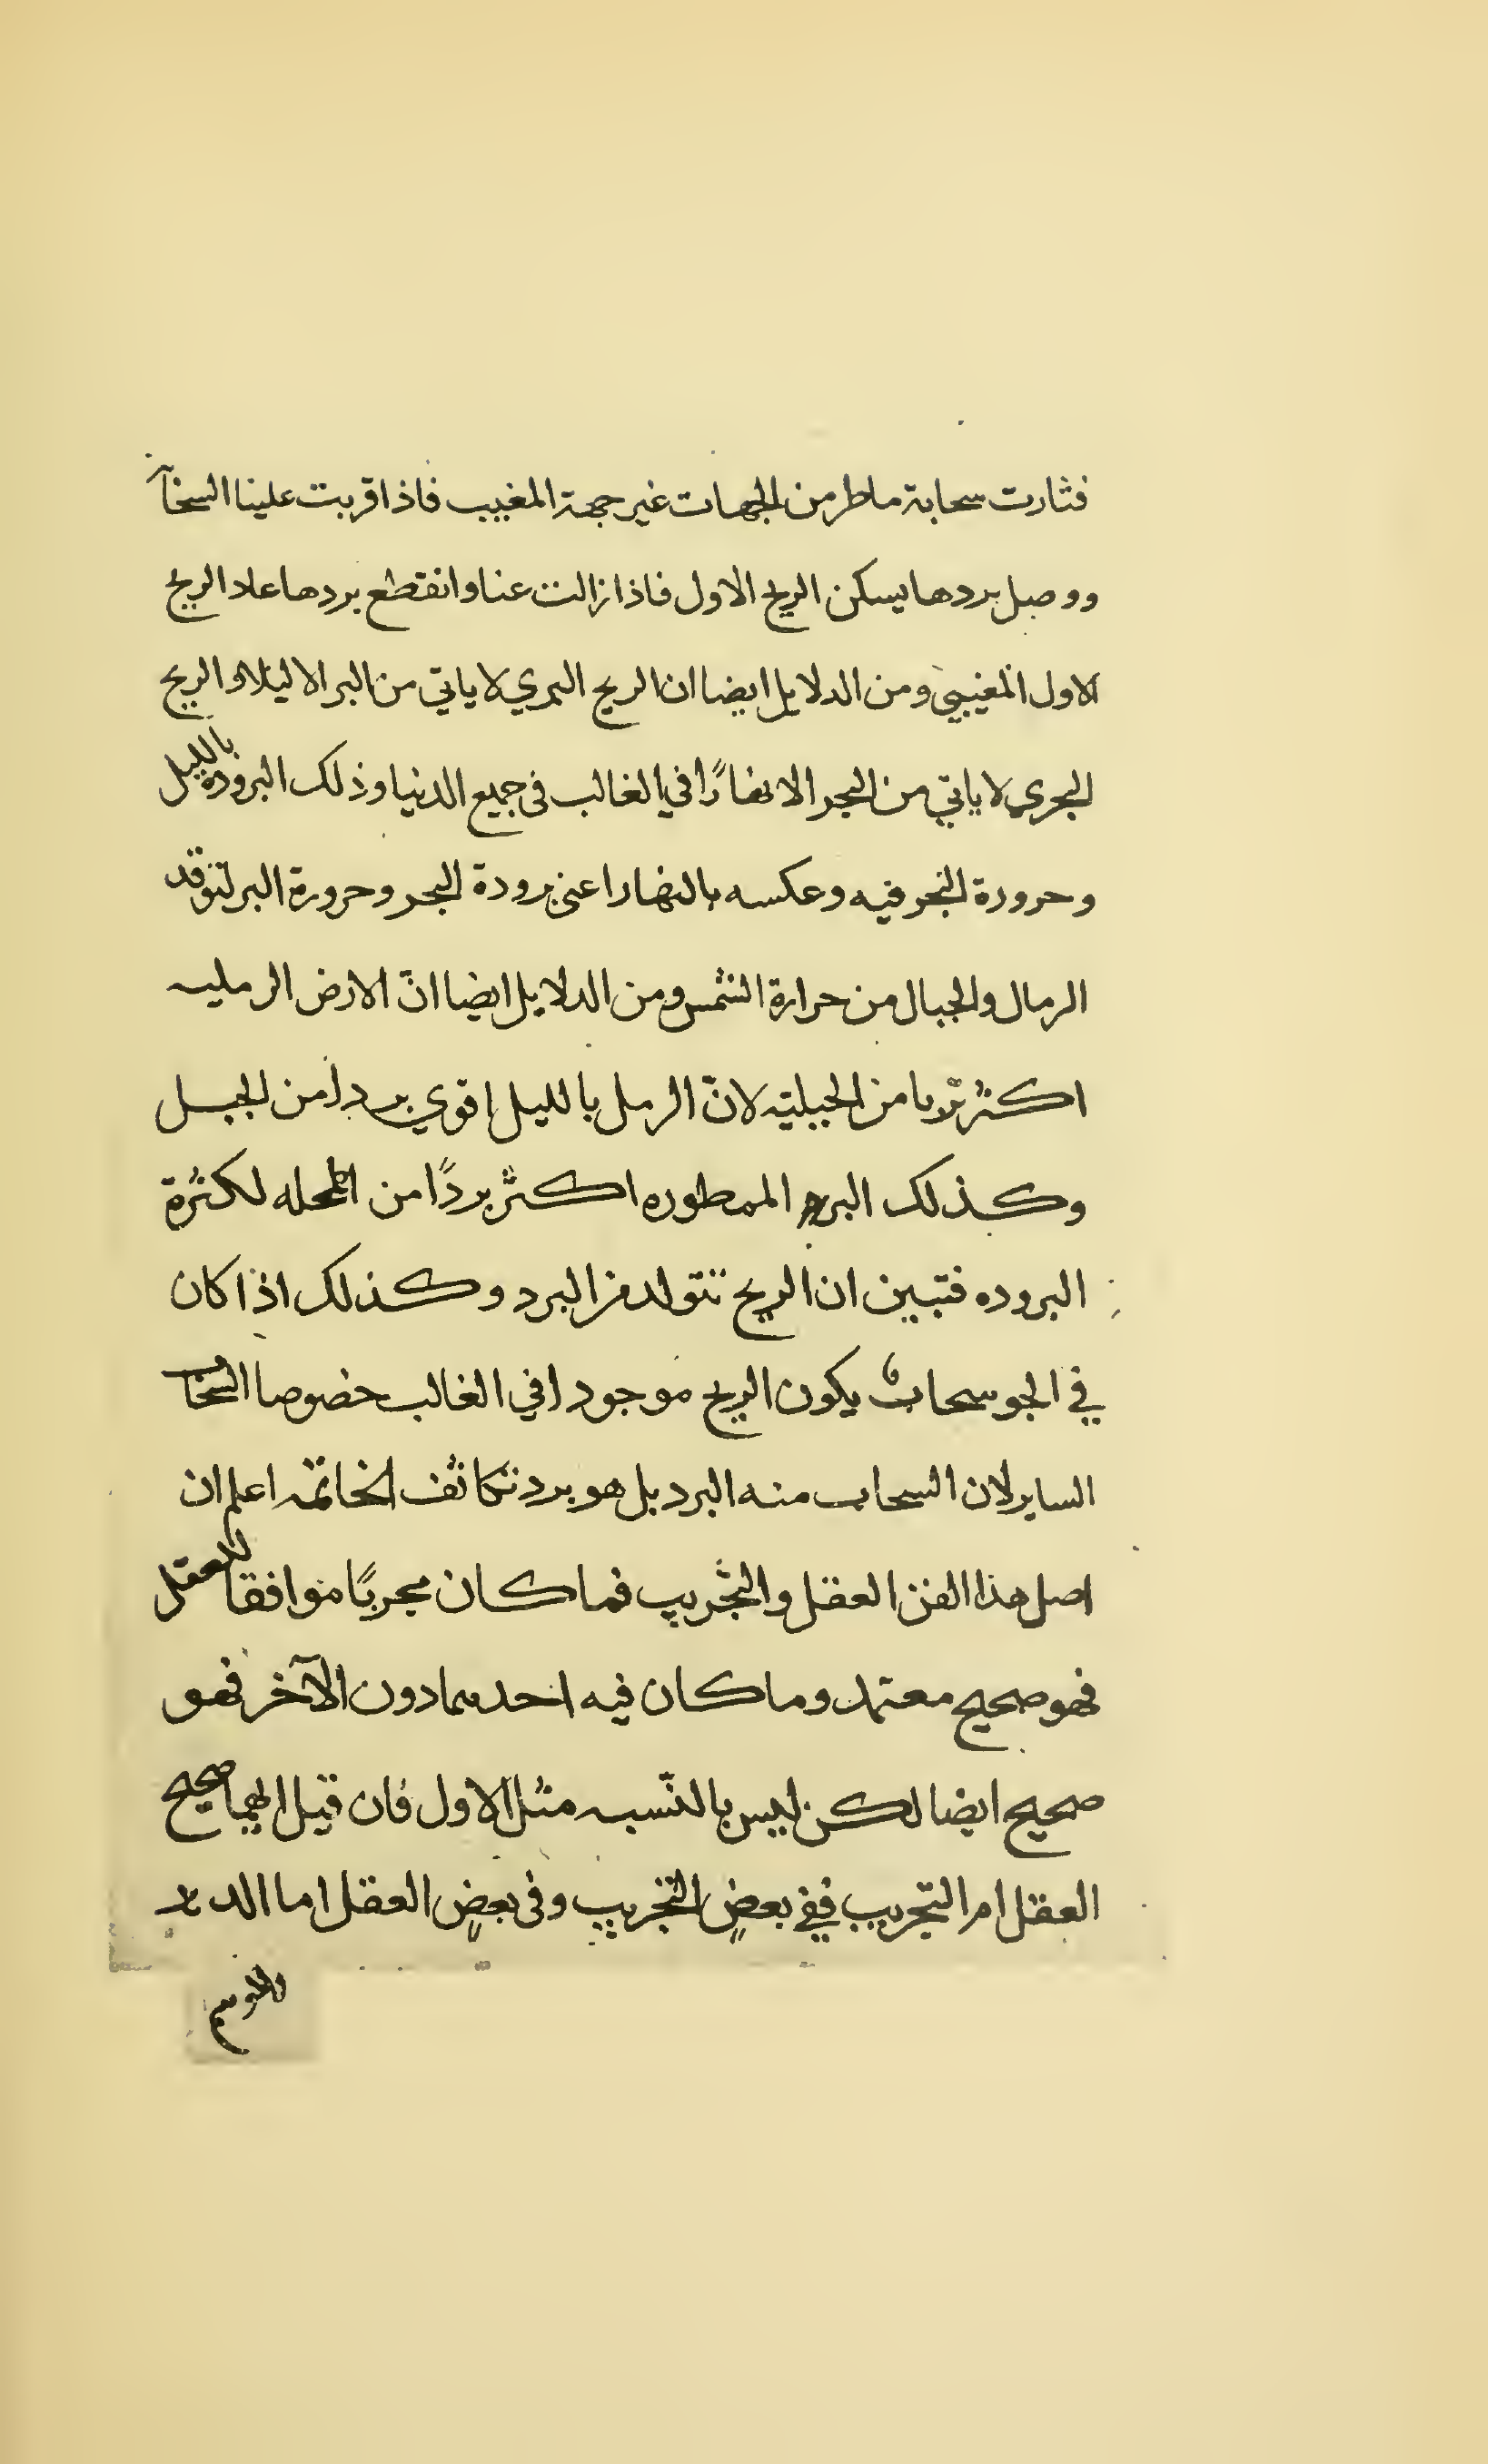 فثارت سحابة ماطر من الجهات غير جهة المغيب فاذا قربت علينا السحاب
ووصل بردها يسكن الريح الاول فاذا زالت عنا وانقطع بردها عاد الريح
الاول المغيبي ومن الدلايل ايضا ان الريح البري لا ياتي من البر الا ليلا والريح
البحري لا ياتي من البحر الا نهارًا في الغالب في جميع الدنيا وذلك البرودة بالليل
وحرورة البحر فيه وعكسه بالنهار اعني برودة البحر وحرورة البر لتوقد
الرمال والجبال من حرارة الشمس ومن الدلايل ايضا انّ الارض الرمليه
اكثر من الجبليّه لانّ الرمل بالليل اقوي بردا من الجبل
وكذلك البر الممطوره اكثر بردًا من المحله لكثرة
البروده فتبين ان الريح تتولد من البرد وكذلك اذا كان
في الجو سحابٌ يكون الريح موجودا في الغالب خصوصا السحاب
الساير لان السحاب منه البرد بل هو برد تكاثف الخاتمه اعلم ان
اصل هذا الفن العقل والتجريب فما كان مجربًا موافقا للعقل
فهو صحيح معتمد وما كان فيه احدهما دون الآخر فهو
صحيح ايضا لكن ليس بالنّسبه مثل الاول فان قيل ايهما صحيح
العقل ام التجريب ففي بعضٍ التجريب وفي بعضٍ العقل اما